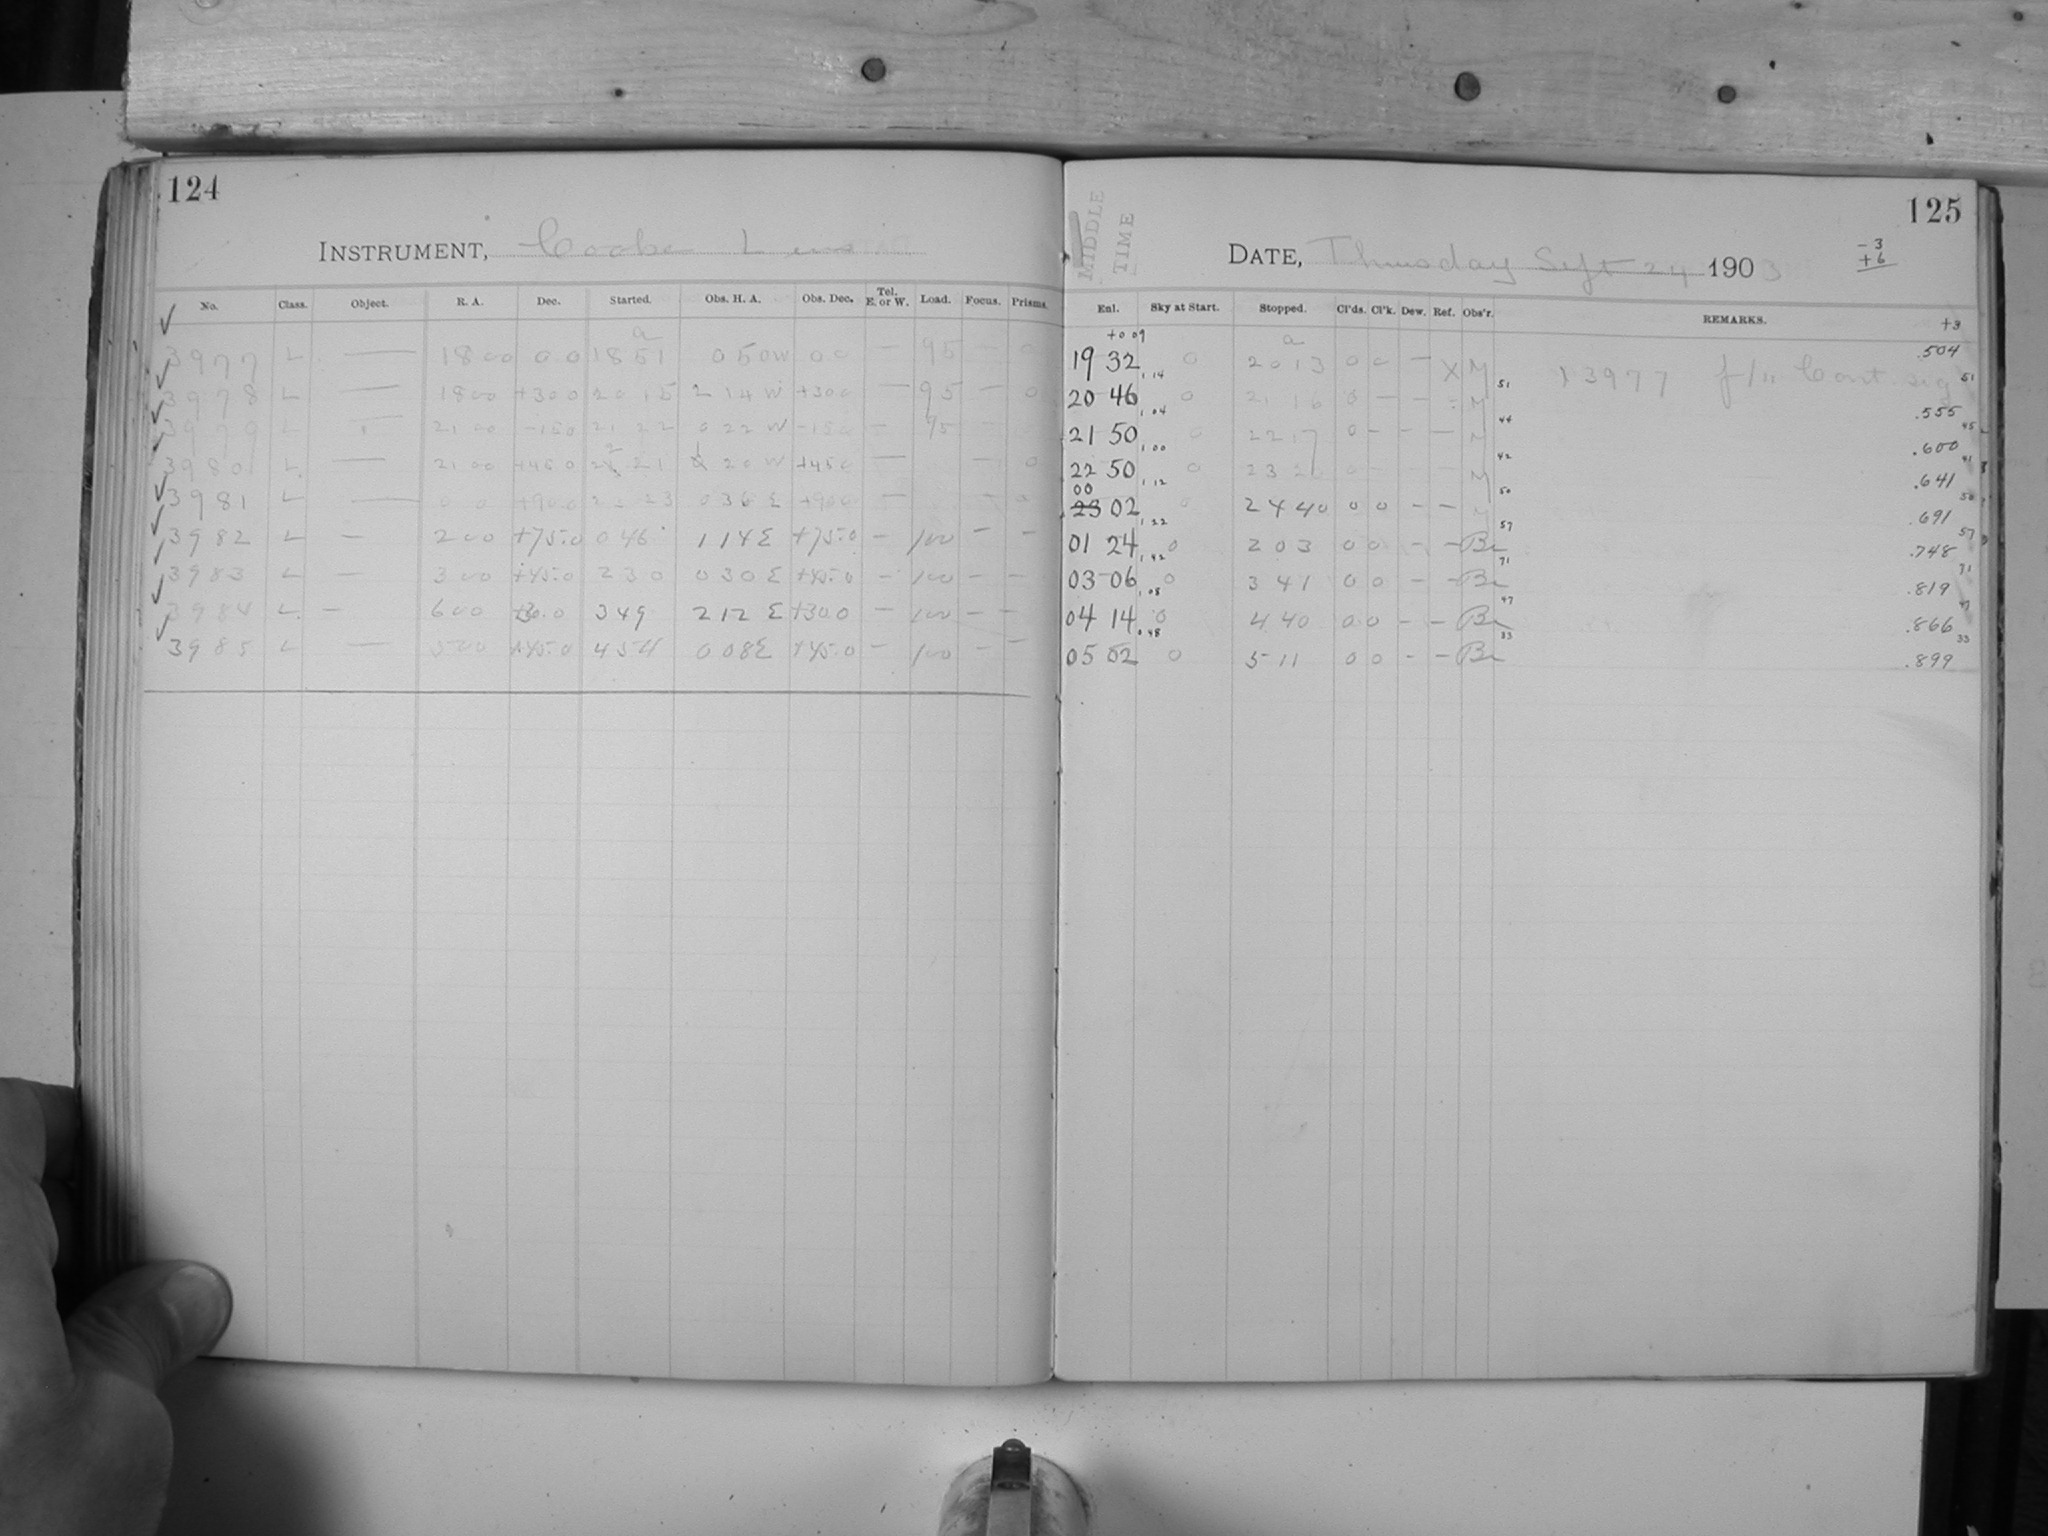 124
INSTRUMENT, Cooke Lens
No. Class. Object. R. A. Dec. Started. Obs. H. A. Obs. Dec. Tel. E. or W. Load. Focus. Prisms.
a
✓ 3977 L — 18 00 0 0 18 51 0 50 W 0 0 — 95 — 0
✓ 3978 L — 18 00 +30 0 20 15 2 14 W +30 0 — 95 — 0
✓ 3979 L — 21 00 -15 0 21 22 0 22 W -15 0 — 95
✓ 3980 L — 21 00 +45 0 21 20 W +45 0 — — 0
✓ 3981 L — 0 0 +90 0 23 23 0 36 E +90 0 — — 0
✓ 3982 L — 2 00 +75.0 0 46 1 14 E +75.0 — 100 — —
✓ 3983 L — 3 00 +45.0 2 30 0 30 E +45.0 — 100 — —
✓ 3984 L — 6 00 +30.0 3 49 2 12 E +30 0 — 100 — —
✓ 3985 L — 5 00 +45.0 4 54 0 08 E +45.0 — 100 — —
125
MIDDLE
TIME
DATE, Thursday Sept 24 1903
-3
+6
Enl. Sky at Start. Stopped. Cl'ds. Cl'k. Dew. Ref. Obs'r. REMARKS. +3
+0 09 a
19 32 1.14 0 20 13 0 0 — X M 51 13977 .504 51
20 46 1.04 0 21 16 0 — — M 44 .555 45
21 50 1.00 0 22 17 0 — — — M 42 .600 41
22 50 1.12 0 23 20 0 — M 50 .641 50
00
23 02 1.22 0 24 40 0 0 — — M 57 .691 57
01 24 1.42 0 2 03 0 0 — — Br 71 .748 71
03 06 1.08 0 3 41 0 0 — — Br 47 .819 47
04 14 0.48 0 4 40 0 0 — — Br 33 .866 33
05 02 0 5 11 0 0 — — Br .899